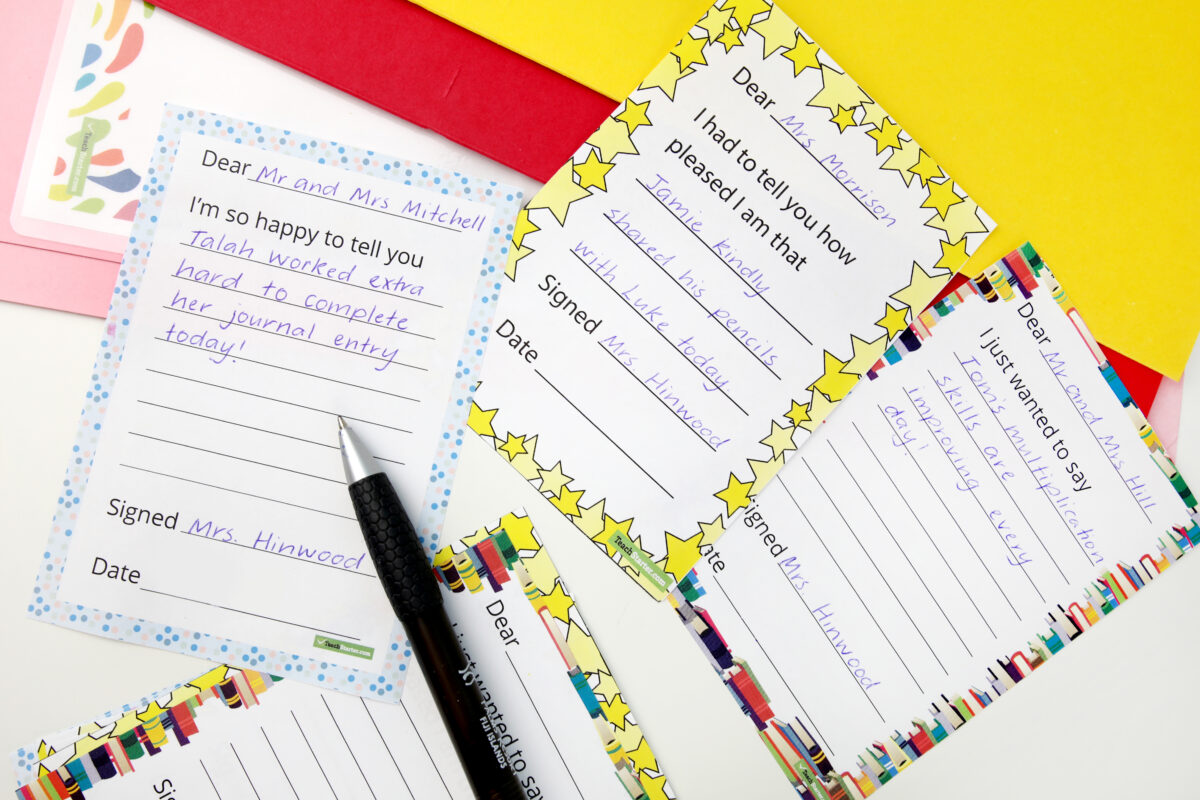 Dear Mr and Mrs Mitchell
I'm so happy to tell you
Talah worked extra
hard to complete
her journal entry
today!
Signed Mrs. Hinwood
Date
TeachStarter.com
Dear Mrs Morrison
I had to tell you how
pleased I am that
Jamie kindly
shared his pencils
with Luke today
Signed Mrs Hinwood
Date
TeachStarter.com
Dear Mr and Mrs Hill
I just wanted to say
Tom's multiplication
skills are
improving every
day!
Signed Mrs Hinwood
Date
TeachStarter.com
Dear
I just wanted to say
FIJI ISLANDS
TeachStarter